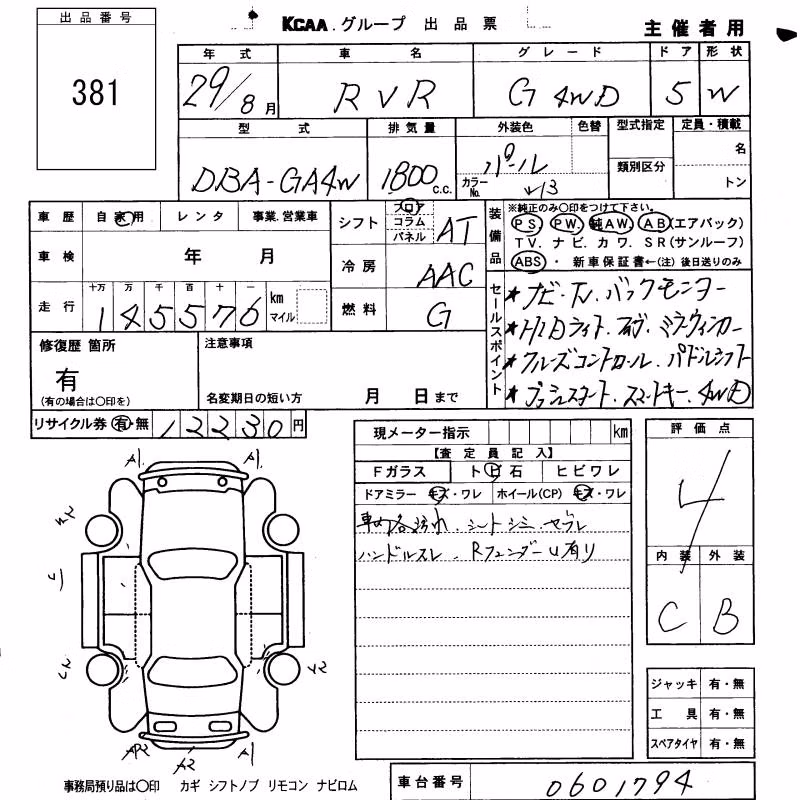 出品番号
381
KCAA.グループ 出品票
主催者用
年式 車名 グレード ドア 形状
29/8月 RVR G 4WD 5 W
型式 排気量 外装色 色替 型式指定 定員・積載
DBA-GA4W 1800 c.c. パール カラーNo. W13 類別区分 名
トン
車歴 自家用 レンタ 事業.営業車
車検 年 月
走行 十万 万 千 百 十 一
145576 km マイル
シフト フロア コラム パネル AT
冷房 AAC
燃料 G
装備品 ※純正のみ〇印をつけて下さい。
PS. PW. 純AW. AB(エアバック)
TV. ナビ. カワ. SR(サンルーフ)
ABS ・ 新車保証書←(注) 後日送りのみ
セールスポイント
★ナビ・TV.バックモニター
★HIDライト. ミラーウィンカー
★クルーズコントロール.パドルシフト
★プッシュスタート.スマートキー.4WD
修復歴 箇所
有
(有の場合は〇印を)
注意事項
名変期日の短い方 月 日まで
リサイクル券 有・無 12230円
現メーター指示 km
【査定員記入】
Fガラス トビ石 ヒビワレ
ドアミラー キズ・ワレ ホイール(CP) キズ・ワレ
車内各汚れ.シートシミ.ヤブレ
ハンドルスレ.Rフェンダーu有り
評価点
4
内装 外装
C B
ジャッキ 有・無
工具 有・無
スペアタイヤ 有・無
A1 A1
A2 A1
事務局預り品は〇印 カギ シフトノブ リモコン ナビロム
車台番号 0601794